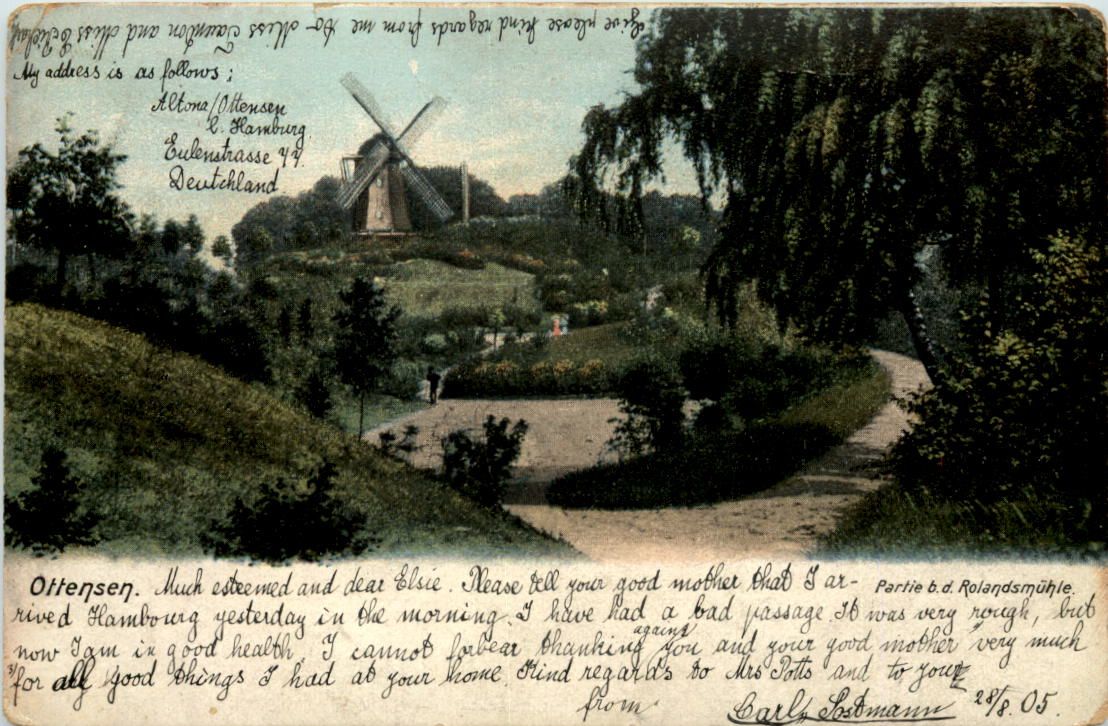 Give please kind regards from me to Miss Taunton and Miss
My address is as follows:
Altona/Ottensen
b. Hamburg.
Eulenstrasse 77.
Deutchland
Ottensen. Much esteemed and dear Elsie. Please tell your good mother that I ar-
Partie b.d. Rolandsmühle.
rived Hambourg yesterday in the morning. I have had a bad passage. It was very rough, but
now I am in good health. I cannot forbear thanking again you and your good mother very much
for all good things I had at your home. Kind regards to Mrs Potts and to your
from Carl Sostmann 28/8.05.